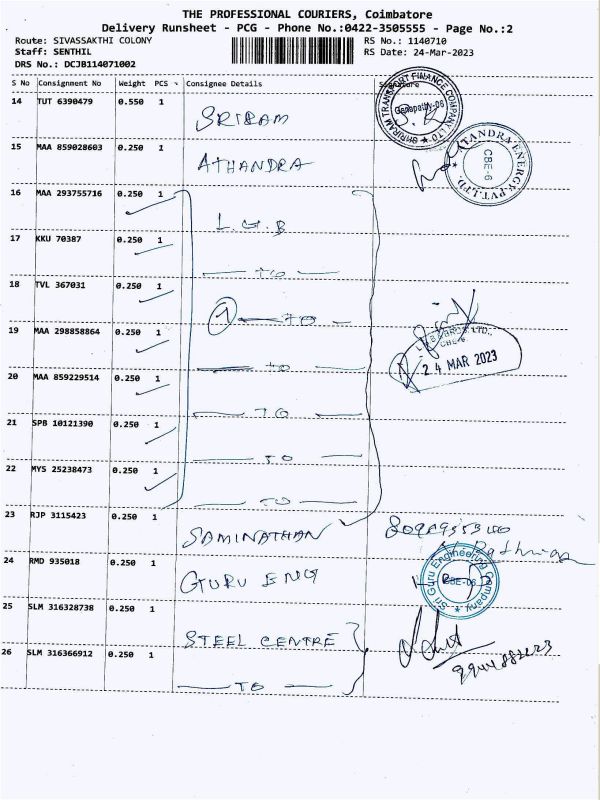 THE PROFESSIONAL COURIERS, Coimbatore
Delivery Runsheet - PCG - Phone No.:0422-3505555 - Page No.:2
Route: SIVASSAKTHI COLONY RS No.: 1140710
Staff: SENTHIL RS Date: 24-Mar-2023
DRS No.: DCJB114071002
S No Consignment No Weight PCS Consignee Details Signature
14 TUT 6390479 0.550 1 SRIRAM
SHRIRAM TRANSPORT FINANCE COMPANY LTD. Ganapathy-06
15 MAA 859028603 0.250 1 ATHANDRA
ATANDRA ENERGY PVT.LTD. CBE-6
16 MAA 293755716 0.250 1 L.G.B
17 KKU 70387 0.250 1 TO
18 TVL 367031 0.250 1 7 TO
19 MAA 298858864 0.250 1 TO
LTD.
CBE-6
24 MAR 2023
20 MAA 859229514 0.250 1 TO
21 SPB 10121390 0.250 1 TO
22 MYS 25238473 0.250 1 TO
23 RJP 3115423 0.250 1 SAMINATHAN
24 RMD 935018 0.250 1 GURU ENG
Sri Guru Engineering Company CBE-06
25 SLM 316328738 0.250 1 STEEL CENTRE
26 SLM 316366912 0.250 1 TO